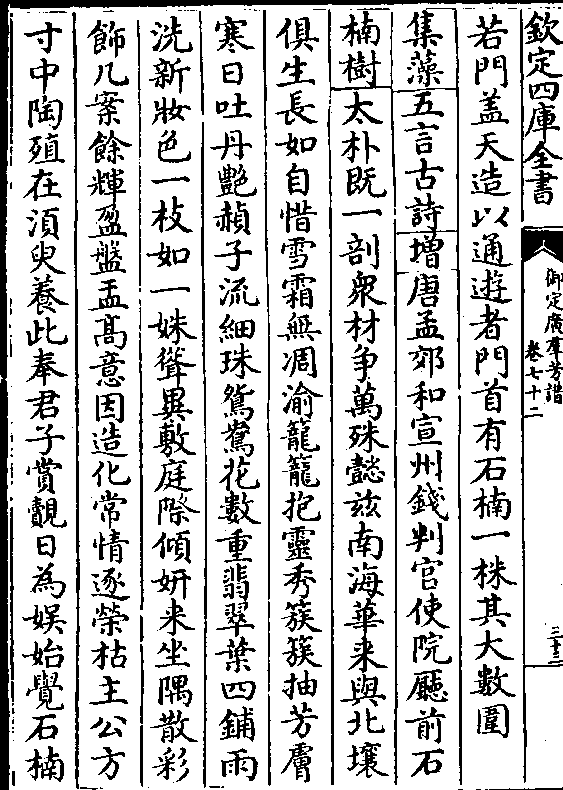 欽定四庫全書
御定廣群芳譜
卷七十二
三十二
若門盖天造以通逰者門首有石楠一株其大數圍
集藻五言古詩增唐孟郊和宣州錢判官使院廳前石
楠樹太朴既一剖衆材争萬殊懿兹南海華来與北壤
俱生長如自惜雪霜無凋渝籠籠抱靈秀簇簇抽芳膚
寒日吐丹艷赬子流細珠鴛鴦花數重翡翠葉四鋪雨
洗新妝色一枝如一姝聳異敷庭際傾妍来坐隅散彩
飾几案餘輝盈盤盂髙意因造化常情逐榮枯主公方
寸中陶殖在湏臾養此奉君子賞覿日為娱始覺石楠